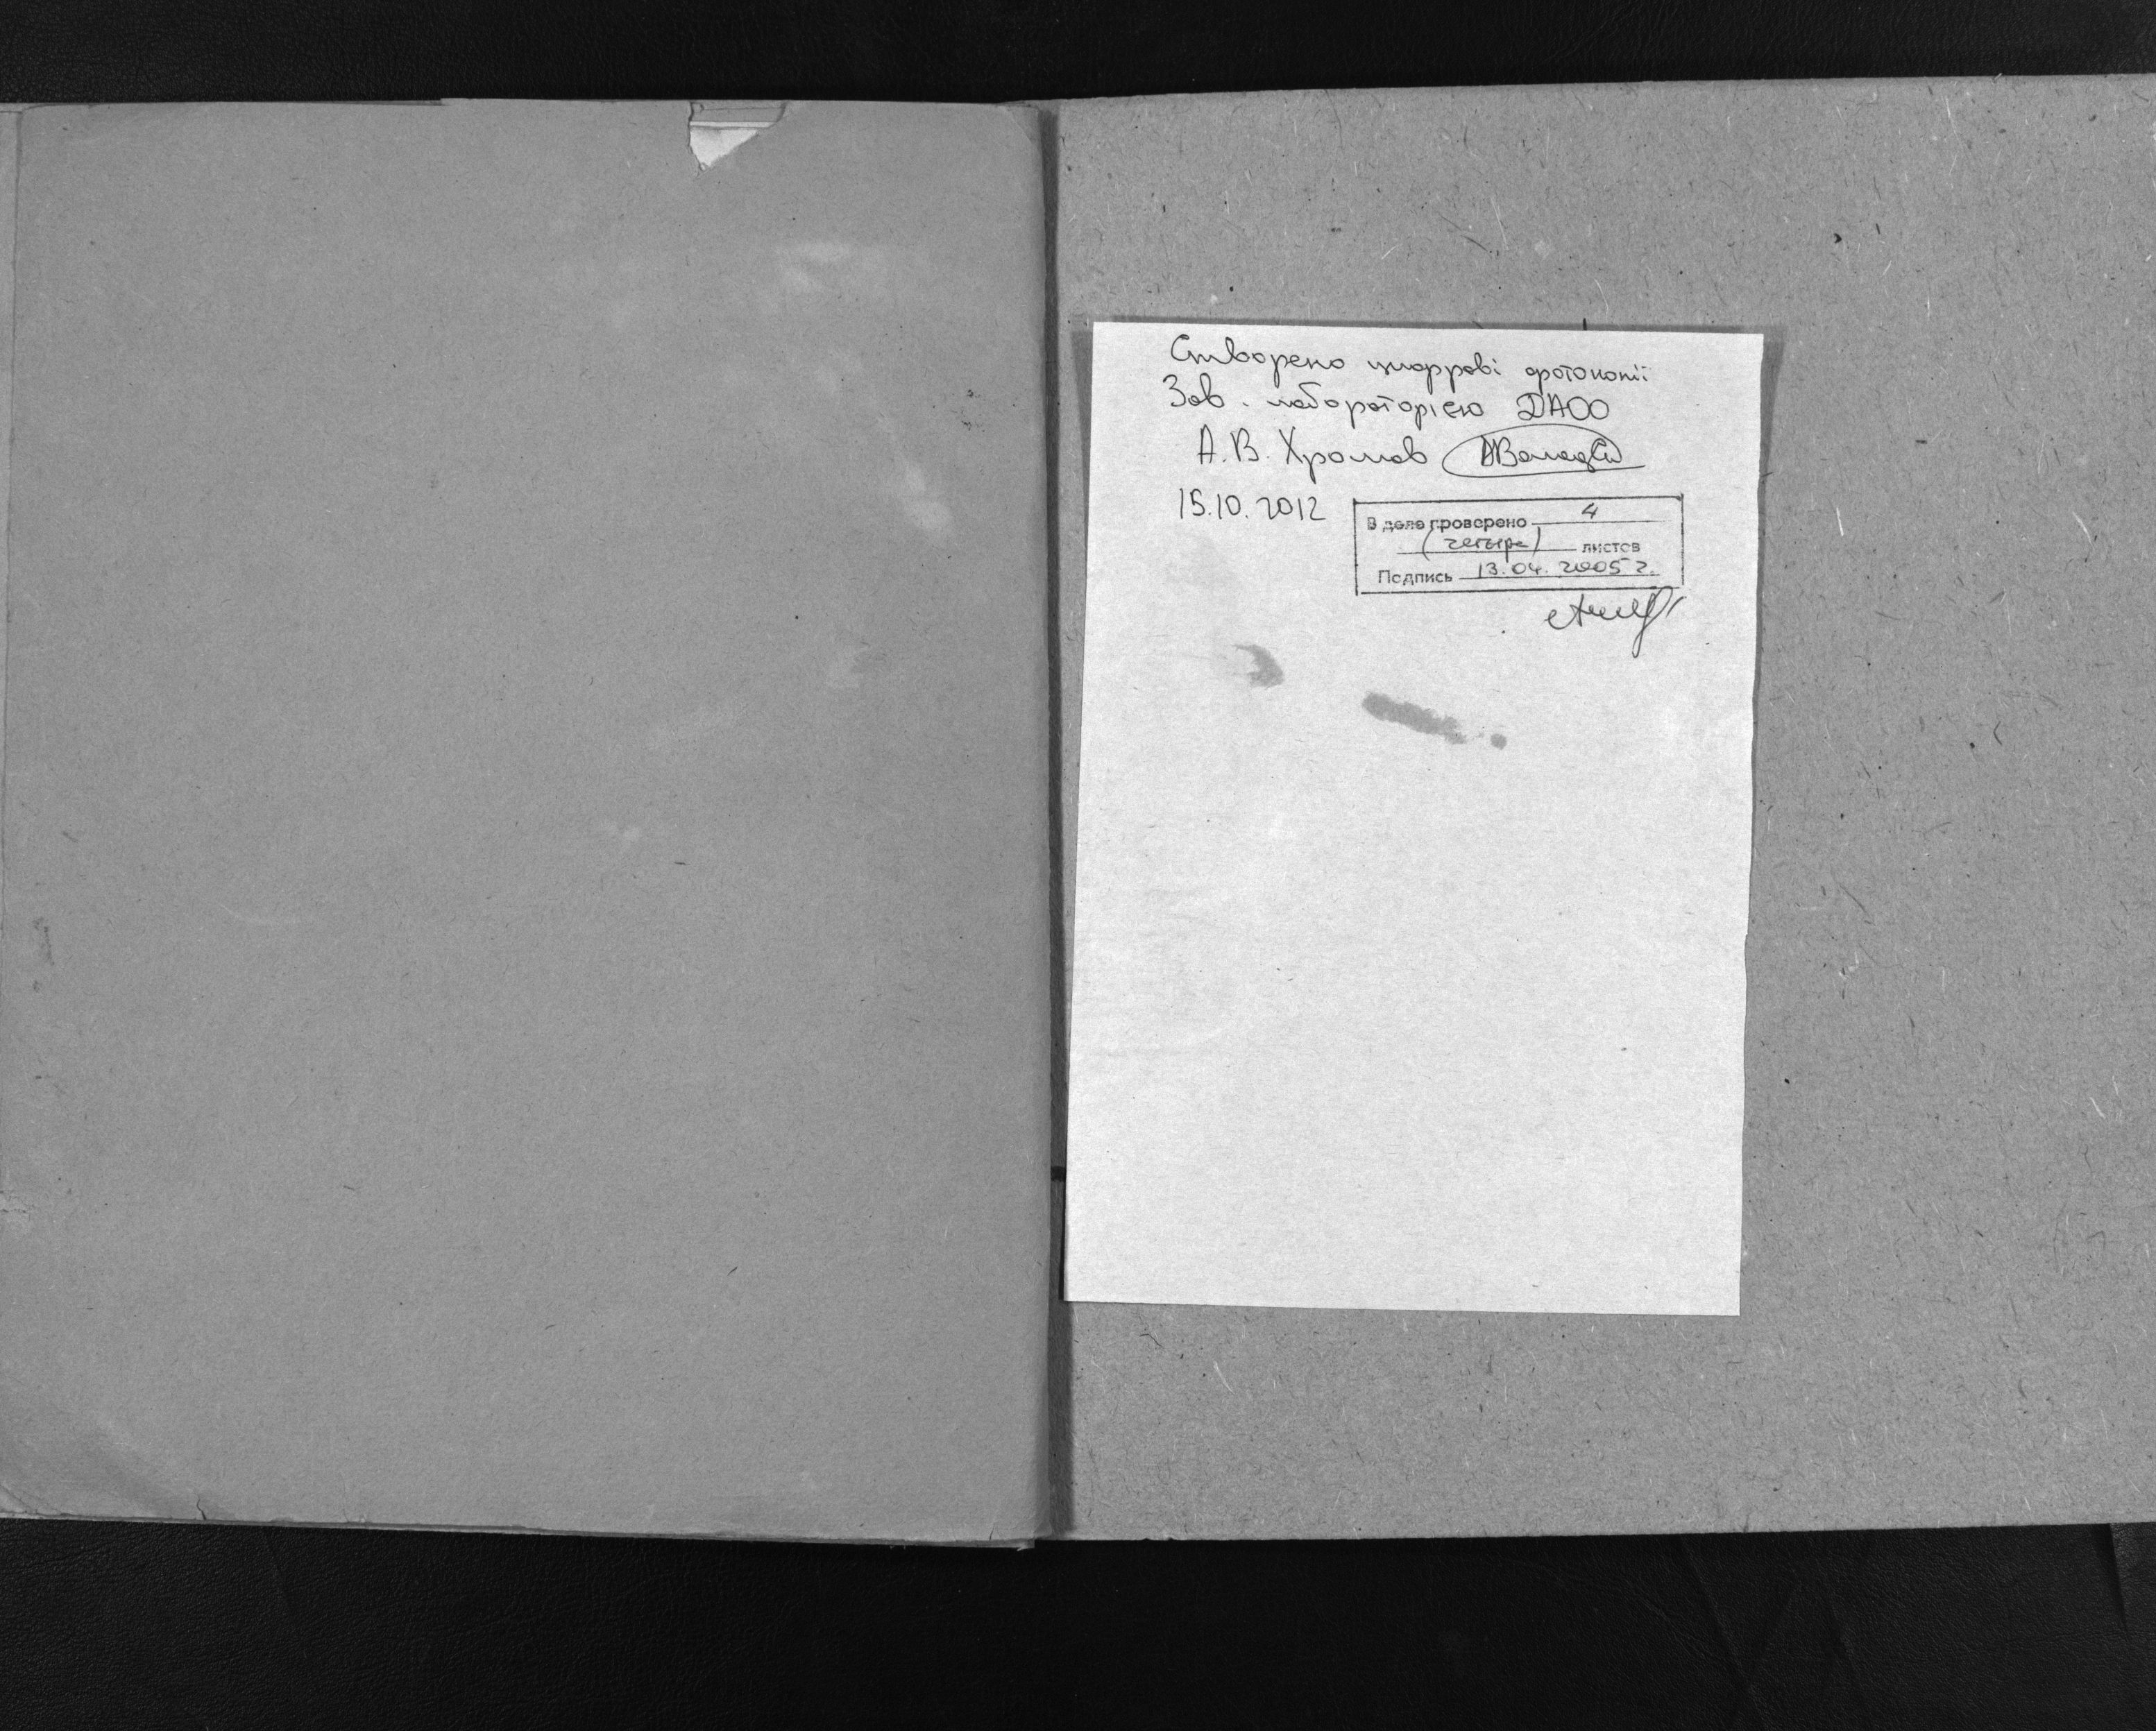 Створено цифрові фотокопії
Зав. лабораторією ДАОО
А.В. Хромов
15.10.2012
В деле проверено 4
(четыре) листов
Подпись 13.04.2005 г.